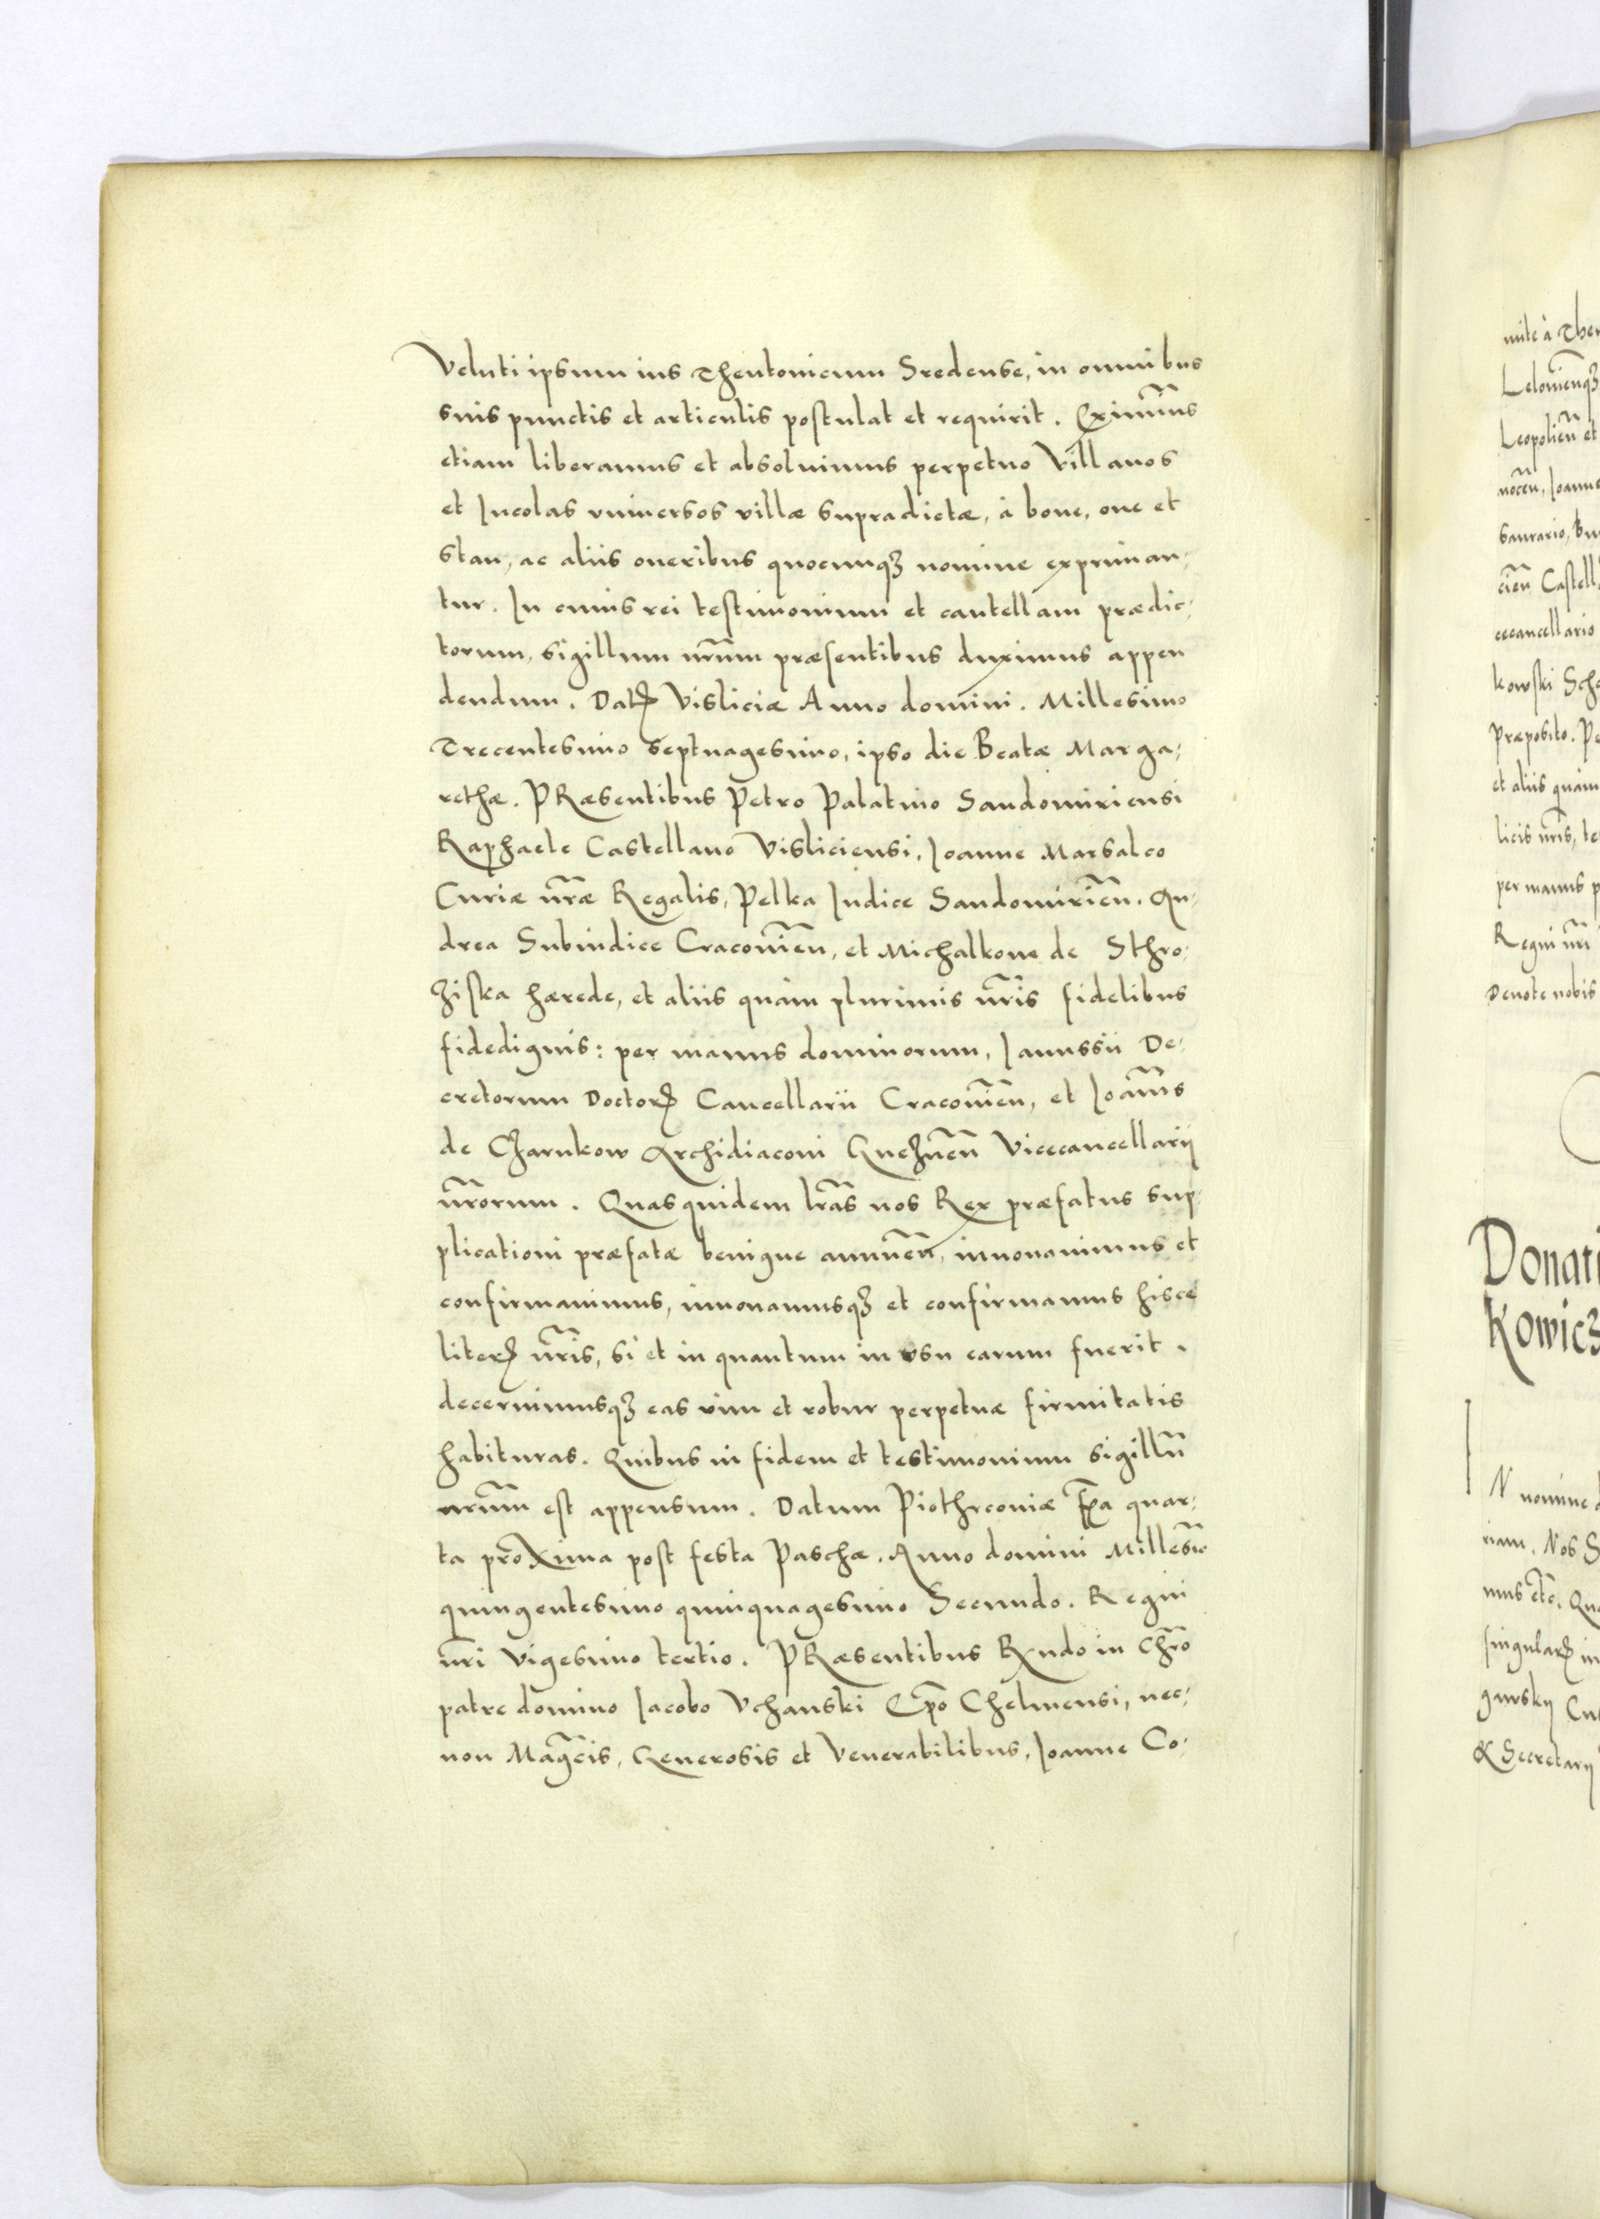 Veluti ipsum ius Theutonicum Sredense, in omnibus
suis punctis et articulis postulat et requirit. Eximim̃us
etiam liberamus et absoluimus perpetuo Villanos
et Incolas vniuersos villæ supradictæ, à boue, oue et
stau, ac aliis oneribus quocunqꝫ nomine expriman-
tur. In cuius rei testimonium et cautellam prædic-
torum, sigillum nr̃um præsentibus duximus appen
dendum. Datꝭ Visliciæ Anno domini. Millesimo
Trecentesimo septuagesimo, ipso die Beatæ Marga-
rethæ. PRæsentibus Petro Palatino Sandomiriensi
Raphaele Castellano Visliciensi, Ioanne Marsalco
Curiæ nr̃æ Regalis, Pelka Iudice Sandomirieñ. An-
drea Subiudice Cracouieñ, et Michalkone de Sthro-
ziska hærede, et aliis quàm plurimis nr̃is fidelibus
fidedignis: per manus dominorum, Ianussii De-
cretorum Doctorꝭ Cancellarii Cracouieñ, et Ioañis
de Charnkow Archidiaconi Gnezneñ Vicecancellarij
nr̃orum. Quas quidem lr̃as nos Rex præfatus sup-
plicationi præfatæ benigne annueñ, innouauimus et
confirmauimus, innouamusqꝫ et confirmamus hisce
literꝭ nr̃is, si et in quantum in vsu earum fuerit.
decernimusqꝫ eas vim et robur perpetuæ firmitatis
habituras. Quibus in fidem et testimonium sigillũ
nr̃um est appensum. Datum Piothrcouiæ fr̃a quar-
ta proxima post festa Paschæ. Anno domini Millesĩo
quingentesimo quinquagesimo Secundo. Regni
nr̃i Vigesimo tertio. PRæsentibus Rñdo in Chr̃o
patre domino Iacobo Vchanski Ep̃o Chelmensi, nec-
non Mag̃cis, Generosis et Venerabilibus, Ioanne Co-
Donati
Kowicz
N nomine